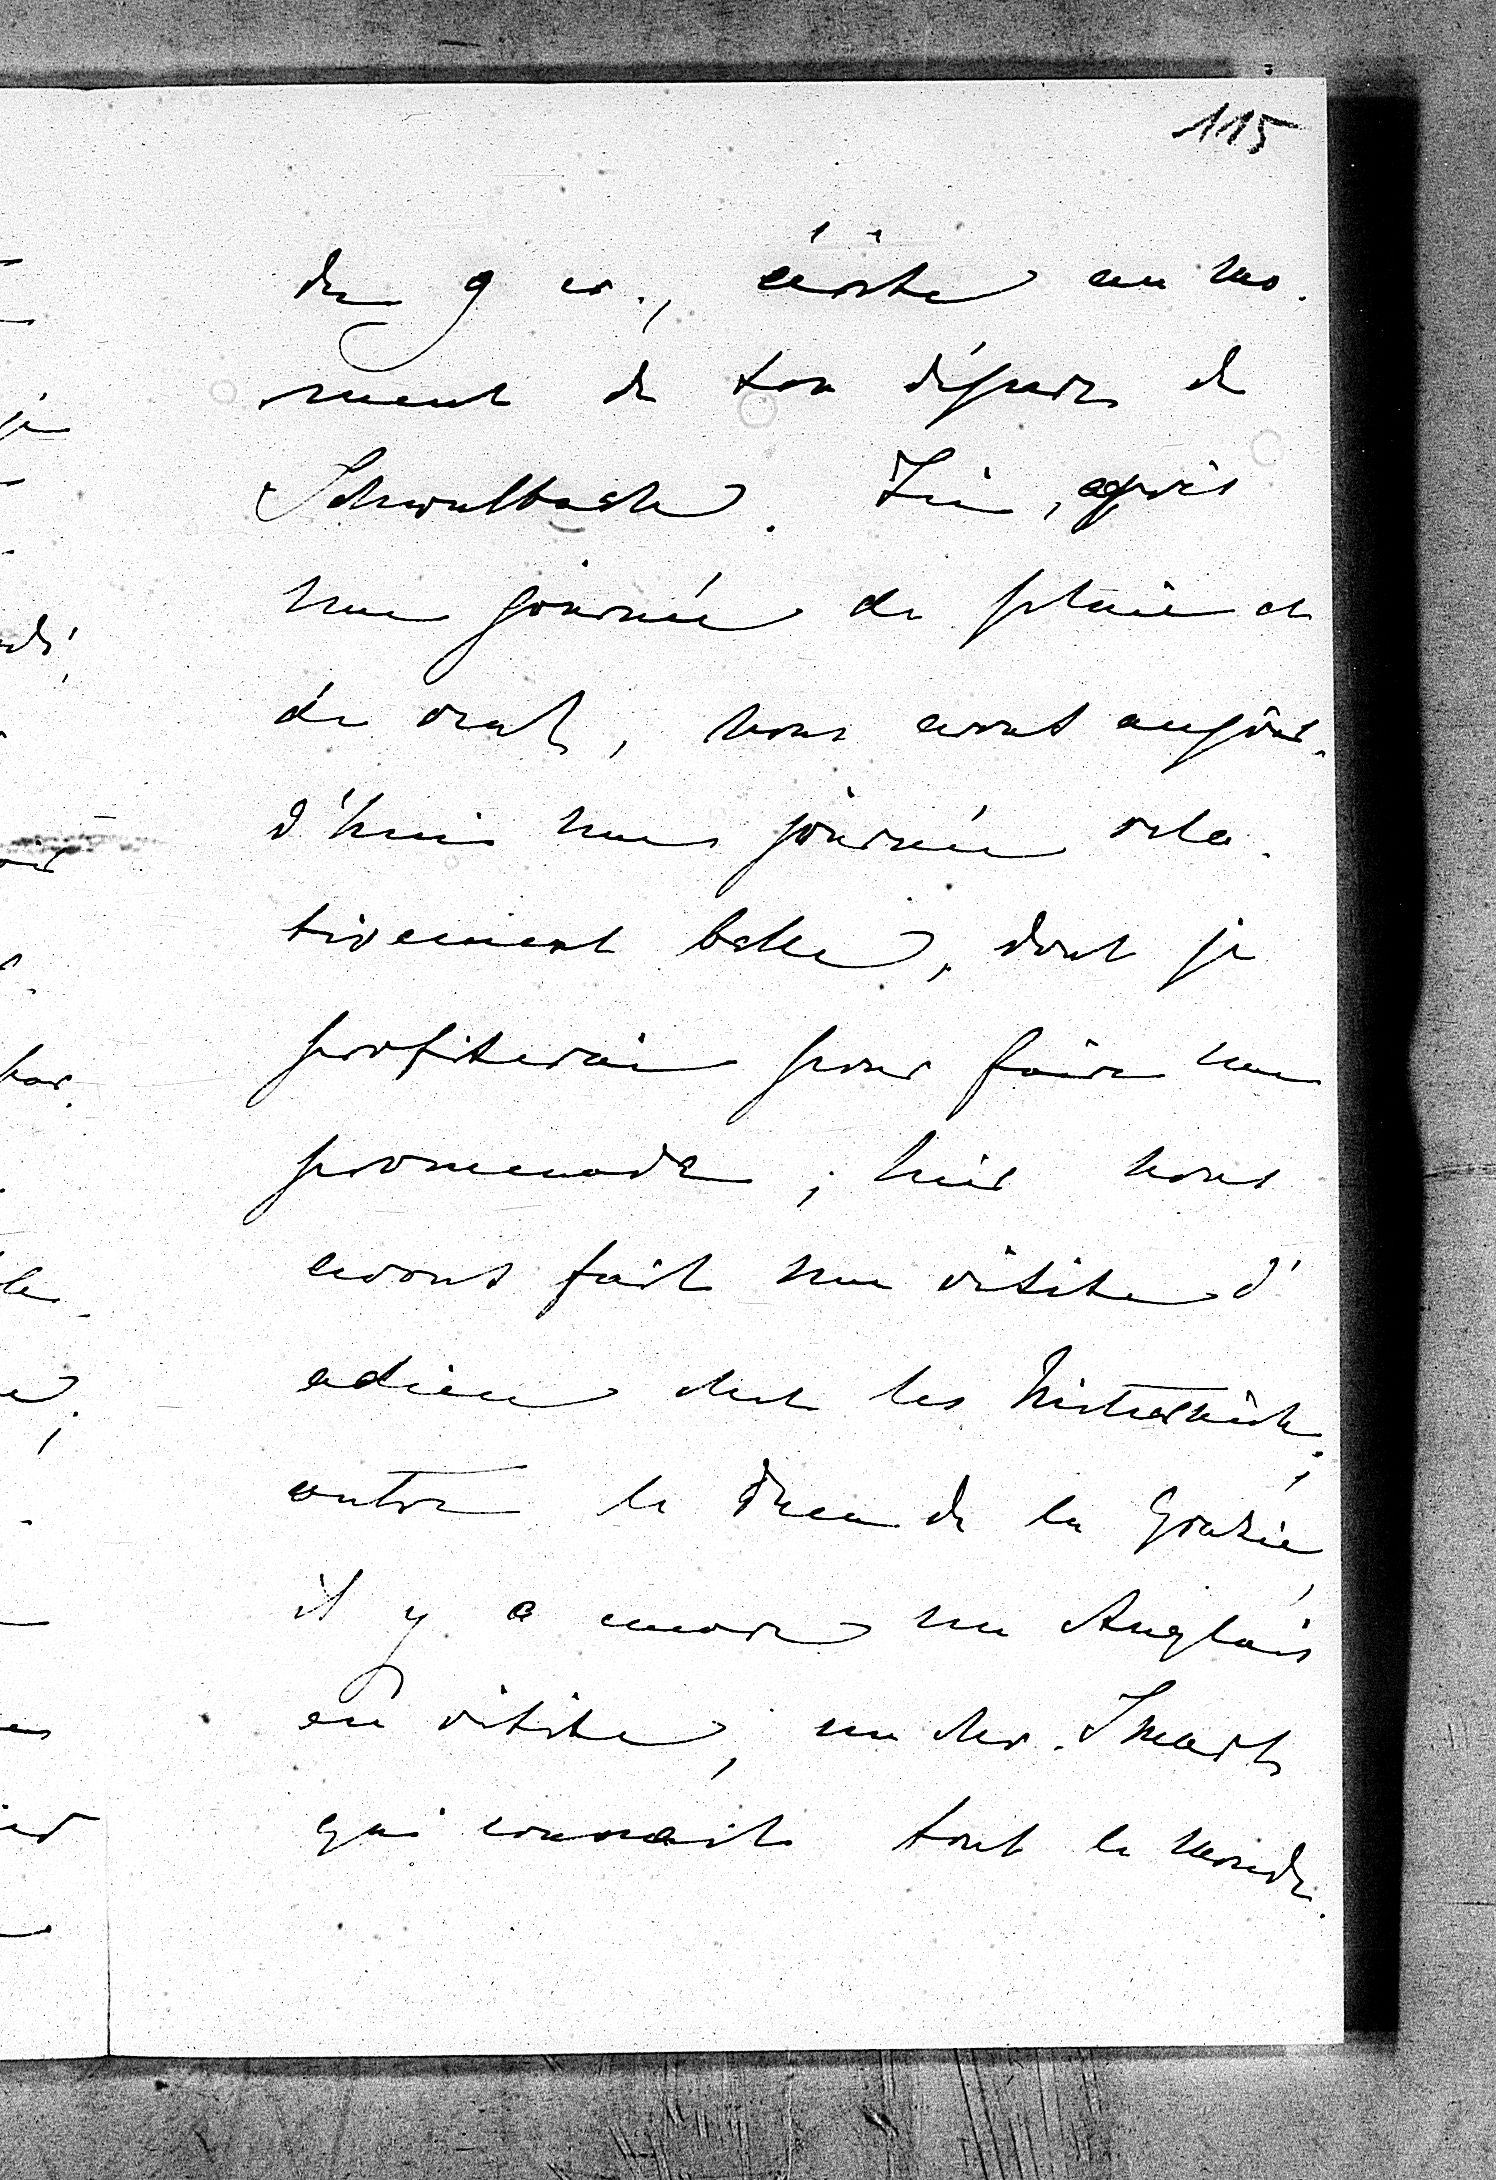 115
du 9 cr., écrite au mo-
ment de ton départ de
Schwalbach. Ici, après
une journée de pluie et
de vent, nous avons aujour-
d'hui une journée rela-
tivement belle, dont je
profiterai pour faire une
promenade; hier nous
avons fait une visite d'
adieu chez les Metternich;
outre le Duca de la Grazia,
il y a encore un Anglais
en visite, un Mr. Smart,
qui connait tout le monde.